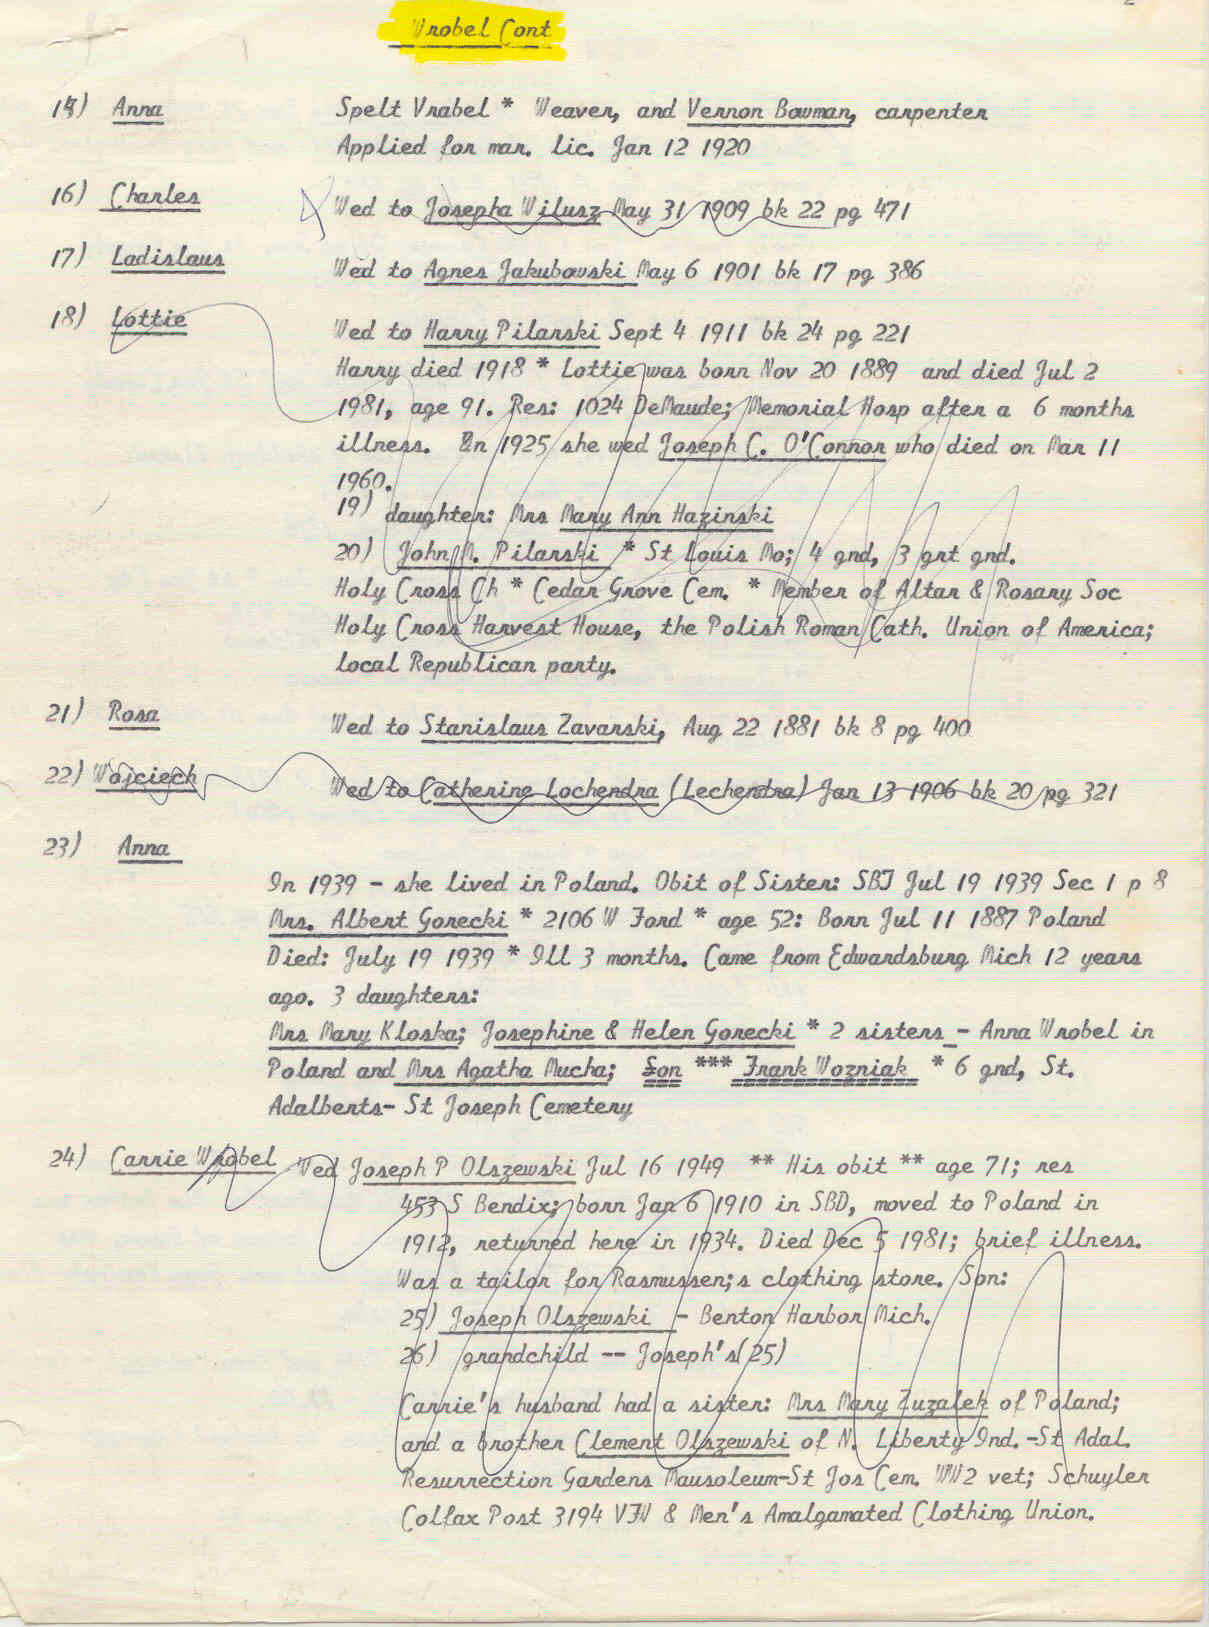 Wrobel Cont
Anna Spelt Vrabel * Weaver, and Vernon Bowman, carpenter
Applied for mar. lic. Jan 12 1920
16) Charles Wed to Josepha Wilusz May 31 1909 bk 22 pg 471
17) Ladislaus Wed to Agnes Jakubowski May 6 1901 bk 17 pg 386
18) Lottie Wed to Harry Pilarski Sept 4 1911 bk 24 pg 221
Harry died 1918 * Lottie was born Nov 20 1889 and died Jul 2
1981, age 91. Res: 1024 DeMaude; Memorial Hosp after a 6 months
illness. In 1925 she wed Joseph C. O'Connor who died on Mar 11
1960.
19) daughter: Mrs Mary Ann Hazinski
20) John M. Pilarski * St Louis Mo; 4 gnd, 3 grt gnd.
Holy Cross Ch * Cedar Grove Cem. * Member of Altar & Rosary Soc
Holy Cross Harvest House, the Polish Roman Cath. Union of America;
local Republican party.
21) Rosa Wed to Stanislaus Zavarski, Aug 22 1881 bk 8 pg 400
22) Wojciech Wed to Catherine Lochendra (Lechendra) Jan 13 1906 bk 20 pg 321
23) Anna
In 1939 - she lived in Poland. Obit of Sister: SBT Jul 19 1939 Sec 1 p 8
Mrs. Albert Gorecki * 2106 W Ford * age 52: Born Jul 11 1887 Poland
Died: July 19 1939 * Ill 3 months. Came from Edwardsburg Mich 12 years
ago. 3 daughters:
Mrs Mary Kloska; Josephine & Helen Gorecki * 2 sisters - Anna Wrobel in
Poland and Mrs Agatha Mucha; Son *** Frank Wozniak * 6 gnd, St.
Adalberts- St Joseph Cemetery
24) Carrie Wrobel Wed Joseph P Olszewski Jul 16 1949 ** His obit ** age 71; res
453 S Bendix; born Jan 6 1910 in SBD, moved to Poland in
1912, returned here in 1934. Died Dec 5 1981; brief illness.
Was a tailor for Rasmussen;s clothing store. Son:
25) Joseph Olszewski - Benton Harbor Mich.
26) grandchild -- Joseph's(25)
Carrie's husband had a sister: Mrs Mary Zuzalek of Poland;
and a brother Clement Olszewski of N. Liberty Ind. -St Adal.
Resurrection Gardens Mausoleum-St Jos Cem. WW2 vet; Schuyler
Colfax Post 3194 VFW & Men's Amalgamated Clothing Union.